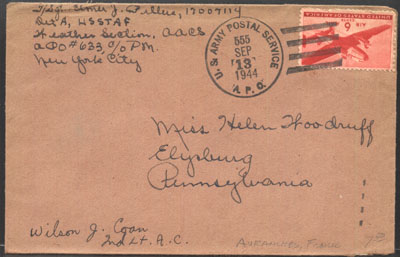 T/Sgt. Elmer J. Pellue, 17009114
Det A, USSTAF
Weather Section, AACS
APO #633 c/o P.M.
New York City
U.S. ARMY POSTAL SERVICE
555
SEP
13
1944
A.P.O.
UNITED STATES OF AMERICA
6
Miss Helen Woodruff
Elysburg
Pennsylvania
Wilson J. Coan
2nd Lt. A.C.